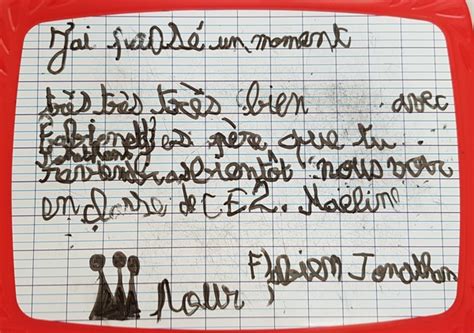 J'ai passé un moment
très très très bien avec
Fabien et j'espère que tu
Jonathan
reviendras bientôt nous voir
en classe de CE2. Maéline
Fabien Jonathan
Nour